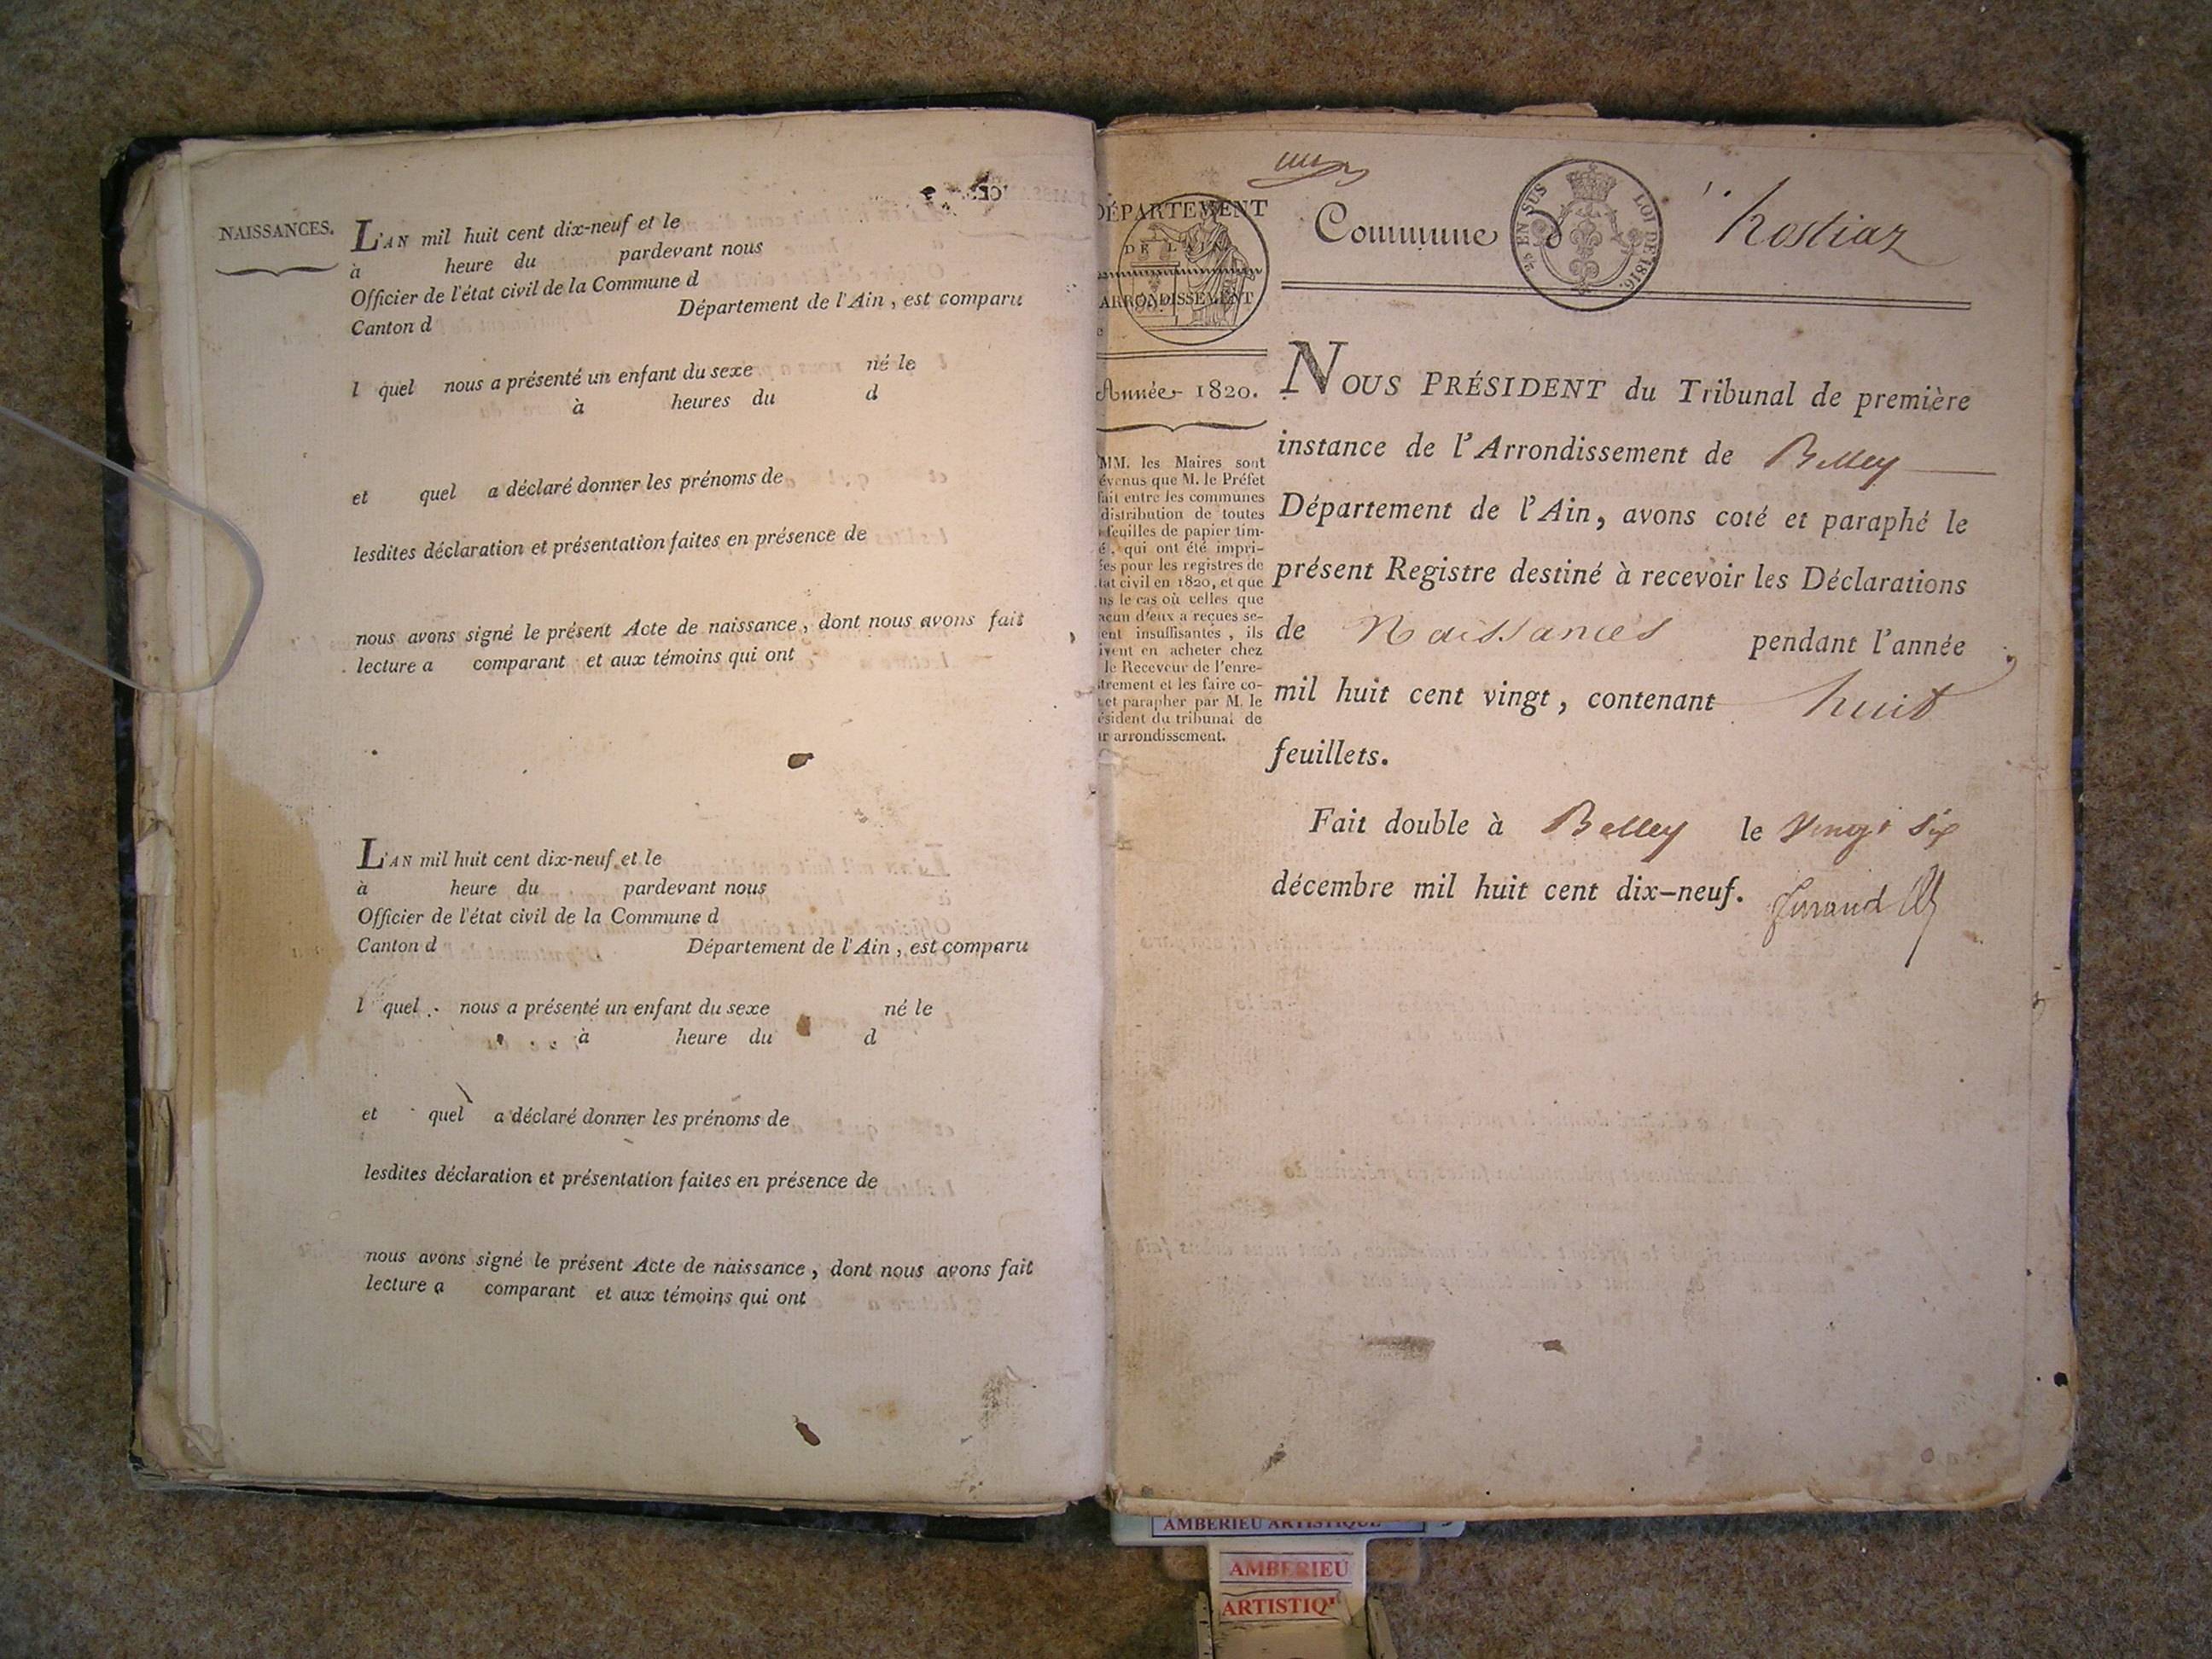 NAISSANCES.
L'AN mil huit cent dix-neuf et le
à heure du pardevant nous
Officier de l'état civil de la Commune d
Canton d Département de l'Ain, est comparu
l quel nous a présenté un enfant du sexe né le
à heures du d
et quel a déclaré donner les prénoms de
lesdites déclaration et présentation faites en présence de
nous avons signé le présent Acte de naissance, dont nous avons fait
lecture a comparant et aux témoins qui ont
L'AN mil huit cent dix-neuf et le
à heure du pardevant nous
Officier de l'état civil de la Commune d
Canton d Département de l'Ain, est comparu
l quel nous a présenté un enfant du sexe né le
à heure du d
et quel a déclaré donner les prénoms de
lesdites déclaration et présentation faites en présence de
nous avons signé le présent Acte de naissance, dont nous avons fait
lecture a comparant et aux témoins qui ont
DÉPARTEMENT
DE L'AIN
ARRONDISSEMENT
Année 1820.
MM. les Maires sont
évenus que M. le Préfet
fait entre les communes
distribution de toutes
feuilles de papier tim-
é, qui ont été impri-
ées pour les registres de
tat civil en 1820, et que
ns le cas où celles que
acun d'eux a reçues se-
ent insuffisantes, ils
ivent en acheter chez
le Receveur de l'enre-
trement et les faire co-
et parapher par M. le
ésident du tribunal de
ur arrondissement.
Commune d'hostiaz
25 EN SUS LOI DE 1816.
NOUS PRÉSIDENT du Tribunal de première
instance de l'Arrondissement de Belley
Département de l'Ain, avons coté et paraphé le
présent Registre destiné à recevoir les Déclarations
de Naissances pendant l'année
mil huit cent vingt, contenant huit
feuillets.
Fait double à Belley le Vingt Six
décembre mil huit cent dix-neuf.
AMBERIEU ARTISTIQUE
AMBERIEU
ARTISTIQ